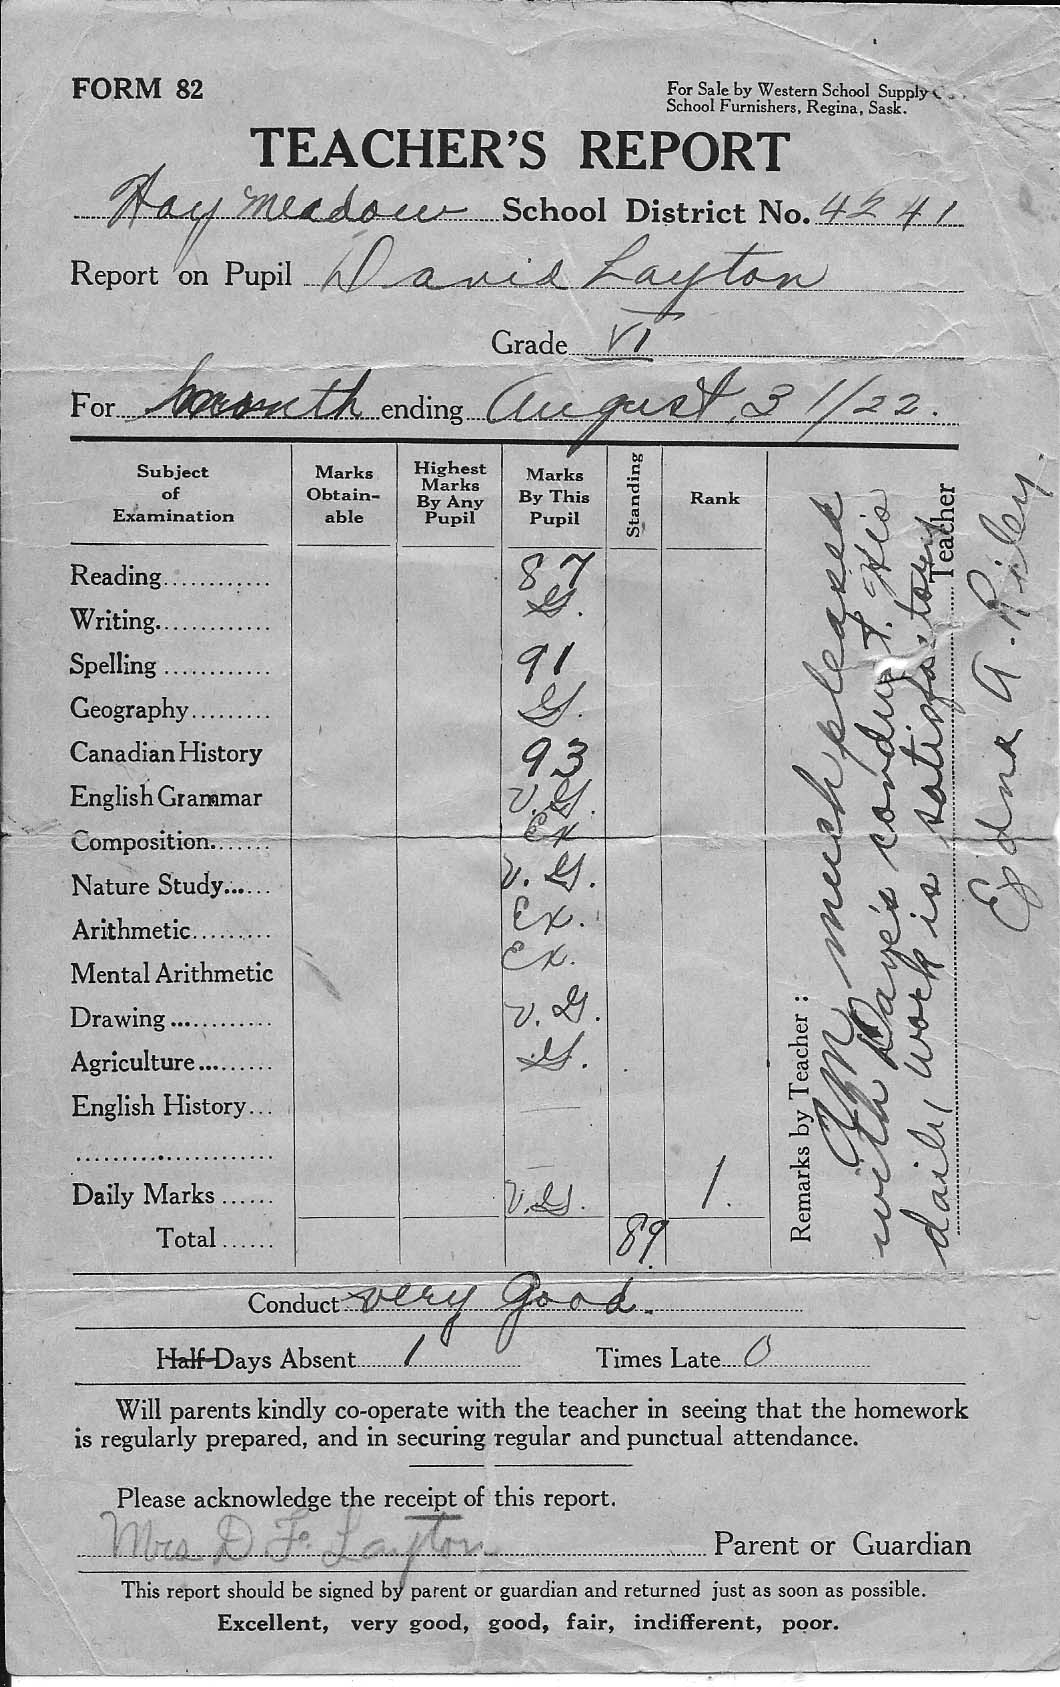 FORM 82
For Sale by Western School Supply
School Furnishers, Regina, Sask.
TEACHER'S REPORT
Hay Meadow School District No. 4241
Report on Pupil David Layton
Grade VI
For month ending August 31/22.
Subject of Examination Marks Obtain-able Highest Marks By Any Pupil Marks By This Pupil Standing Rank
Reading............ 87
Writing............. G.
Spelling............ 91
Geography......... G.
Canadian History 93
English Grammar V.G.
Composition....... Ex
Nature Study...... V.G.
Arithmetic......... Ex.
Mental Arithmetic Ex.
Drawing............ V.G.
Agriculture......... G.
English History...
Daily Marks...... V.G. 1.
Total...... 89
Remarks by Teacher:
Am much pleased
with Dave's conduct. His
daily work is satisfactory
Teacher
Edna A. Riley.
Conduct very good.
Half-Days Absent 1 Times Late 0
Will parents kindly co-operate with the teacher in seeing that the homework
is regularly prepared, and in securing regular and punctual attendance.
Please acknowledge the receipt of this report.
Mrs D. F. Layton Parent or Guardian
This report should be signed by parent or guardian and returned just as soon as possible.
Excellent, very good, good, fair, indifferent, poor.